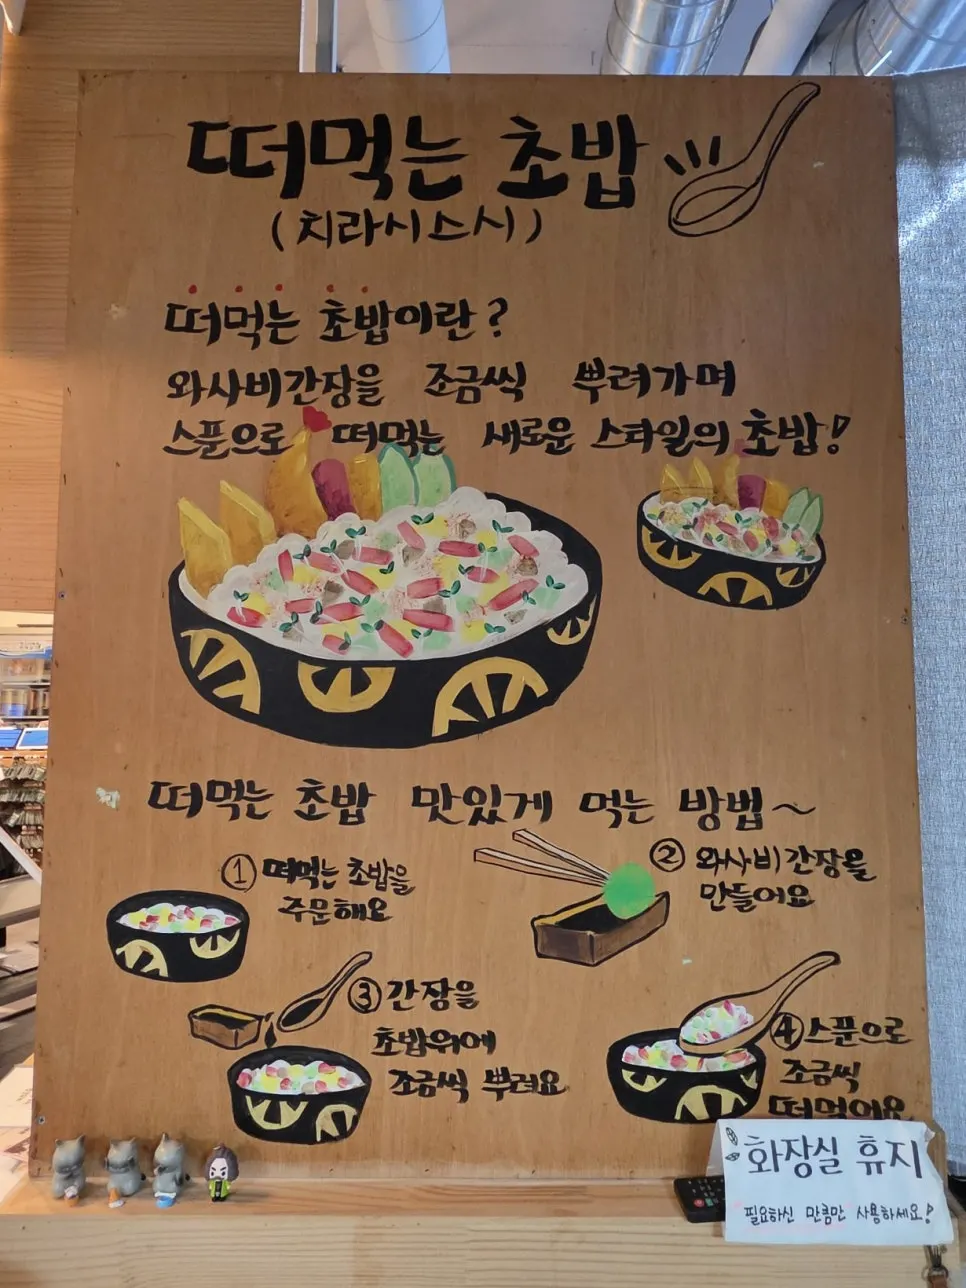 떠먹는 초밥
(치라시스시)
떠먹는 초밥이란?
와사비간장을 조금씩 뿌려가며
스푼으로 떠먹는 새로운 스타일의 초밥!
떠먹는 초밥 맛있게 먹는 방법~
① 떠먹는 초밥을
주문해요
② 와사비간장을
만들어요
③ 간장을
초밥위에
조금씩 뿌려요
④ 스푼으로
조금씩
떠먹어요
화장실 휴지
필요하신 만큼만 사용하세요!